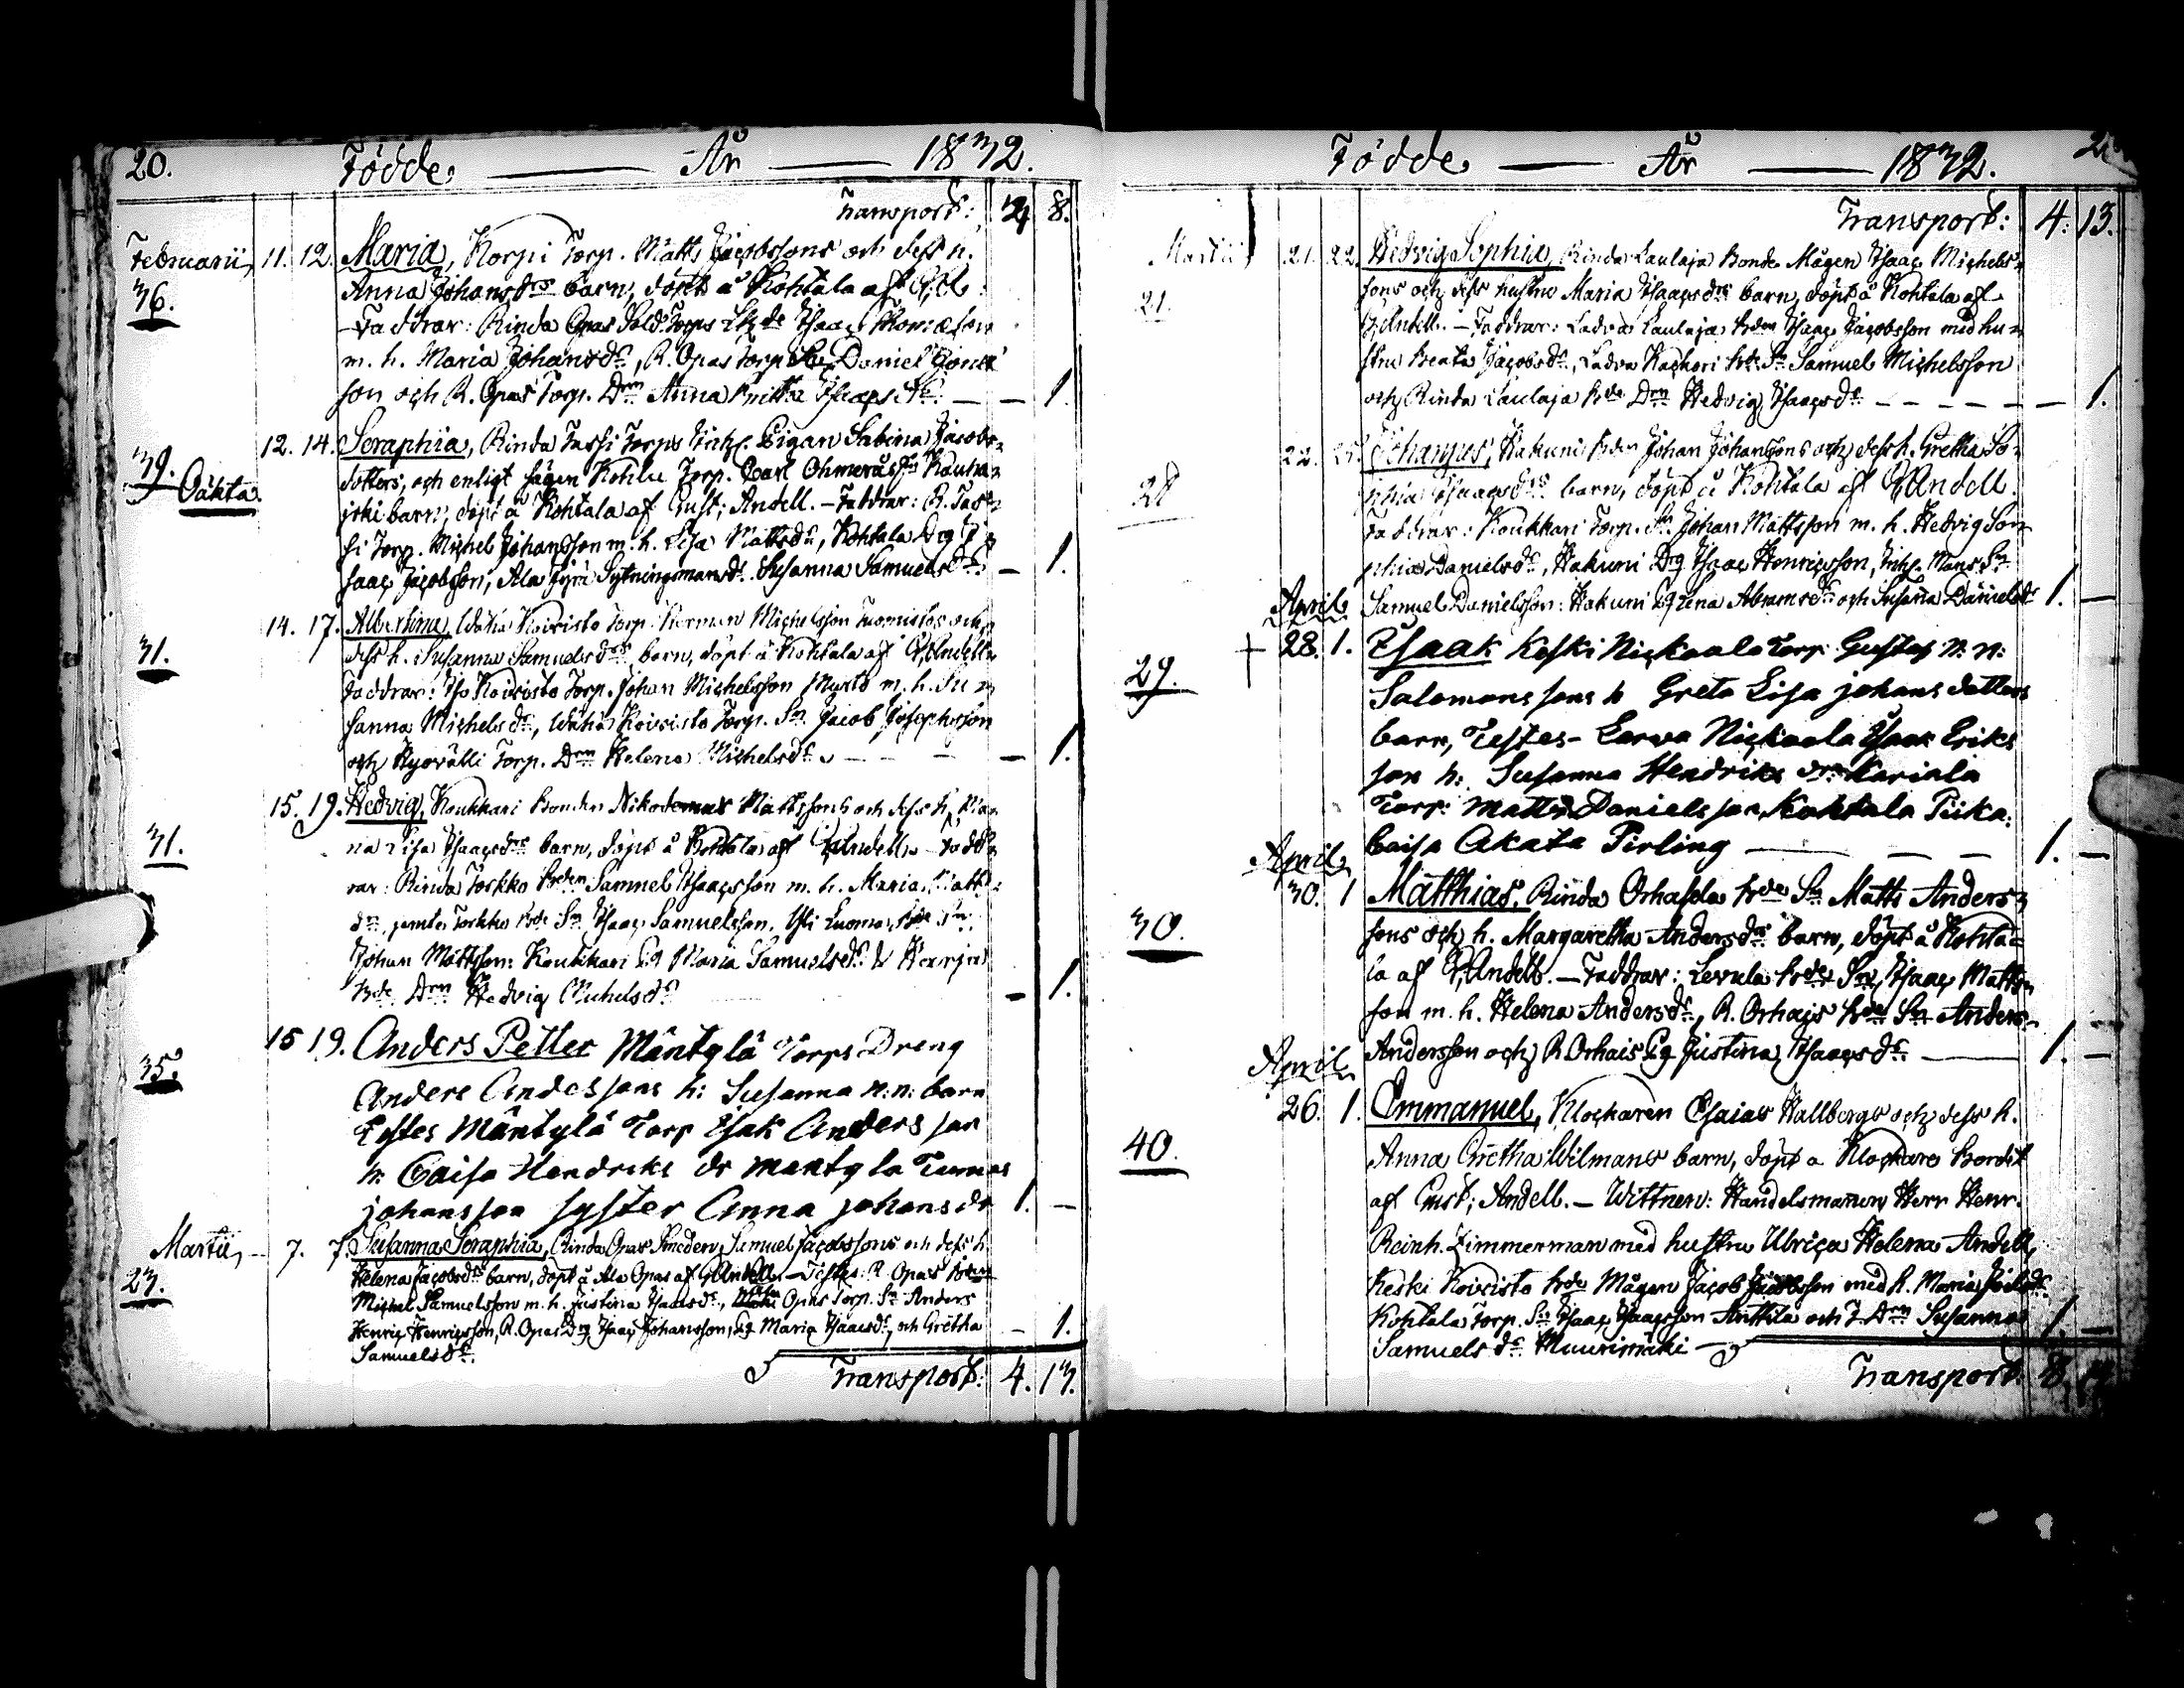 20. Födde — År — 1832.
Transport: 8.
Februarii, 11. 12. Maria, Korpi Torp. Matts Jacobssons och dess h.
36. Anna Johansdrs barn, döpt å Kohtala af
Faddrar: Rinda Opas Sold. Torps Isaac
m. h. Maria Johansdr, R. Opas Torp. Daniel
son och R. Opas Torp. Drn Anna Britta Isaacsdr. — — 1.
12. 14. Seraphia, Rinda Passi Torps Pigan Sabina Jacobs-
39. Oäkta. dotters, och enligt sägen Torp. Carl Kauha-
joki barn, döpt å Kohtala af Gust; Andell. — Faddrar: R. Pas-
si Torp. Michel Johansson m. h. Lisa Mattsdr, Kohtala Drg I-
saac Jacobsson, Ala Jyrä Sytningsmansdr. Susanna Samuelsdr. — 1.
14. 17. Albertina, Koivisto Torp. Herman Michelsson Tuomistos och
31. dess h. Susanna Samuelsdrs barn, döpt å Kohtala af G. Andell.
Faddrar: Koivisto Torp. Johan Michelsson m. h. Su-
sanna Michelsdr, Koivisto Torp. Sn Jacob Josephsson
och Hyövälti Torp. Drn Helena Michelsdr. — — — — 1.
15. 19. Hedvig, Koukkari Bonden Nikodemus Mattssons och dess h. Ma-
31. ria Lisa Isaacsdrs barn, döpt å Kohtala af G. Andell. — Fadd-
rar: Rinda Torkko Bden Samuel Isaacsson m. h. Maria Matts-
dr, jemte Torkko Bde Sn Isaac Samuelsson, Luoma Bde Sn
Johan Mattsson: Koukkari Pg Maria Samuelsdr &
Bde Drn Hedvig Michelsdr — 1.
15 19. Anders Petter Mäntylä Torps Dreng
35. Anders Andessons h: Susanna n: n: barn
Testes Mäntylä Torp Isak Anders son
h. Caisa Hendriks dr mantyla Tumas
johansson syster Anna johans dr 1. —
Martii, — 7. 7. Susanna Seraphia, Rinda Opas Smeden Samuel Jacobssons och dess h
23. Helena Jacobsdrs barn, döpt å Ala Opas af G. Andell. — Testes: R. Opas Bden
Michel Samuelsson m. h. Justina Isaacsdr, Opas Torp. Sn Anders
Henric Henricsson, R. Opas Drg Isaac Johansson, Pg Maria Isaacsdr, och Gretha — 1.
Samuelsdr.
Transport: 4. 13.
Födde — År — 1832.
Transport: 4. 13.
Martii, 21. 22. Hedvig Sophia, Rinda Laulaja Bonde Mågen Isaac Michels-
21. sons och dess hustru Maria Isaacsdrs barn, döpt å Kohtala af
G. Andell. — Faddrar: Ladva Laulaja Bden Isaac Jacobsson med hu-
stru Beata Jacobsdr, Ladva Kackori Bde Sn Samuel Michelsson
och Rinda Laulaja Bde Drn Hedvig Isaacsdr — — — — — 1.
22. 25. Johannes, Hakuni Bden Johan Johanssons och dess h. Gretha So-
28 phia Isaacsdrs barn, döpt å Kohtala af G. Andell.
Faddrar: Koukkari Torp. Sn Johan Mattsson m. h. Hedvig So-
phia Danielsdr, Hakuni Drg Isaac Henricsson, Sn
April Samuel Danielsson: Hakuni Pg Lena Abramsdr och Susanna Danielsdr 1. —
+ 28. 1. Isaak Keski Nickaala Torp Gustaf n: n:
29. Salomons sons h Greta Lisa johans dotters
barn, Testes — Larva Nickaala Isaac Eriks
son h: Susanna Hendriks dr Kariala
Torp: Matts Daniels son, Kohtala Piika:
Caisa Akata Pirling — — — 1. —
April 30. 1 Matthias, Rinda Orhasla Bde Sn Matts Anders-
30. sons och h. Margaretha Andersdrs barn, döpt å Kohta-
la af G. Andell. — Faddrar: Levula Bde Sn Isaac Matts-
son m. h. Helena Andersdr, R. Orhais Bde Sn Anders
Andersson och R Orhais Pg Justina Isaacsdr — 1. —
April 26. 1. Emmanuel, Klockaren Esaias Hallbergs och dess h.
40. Anna Gretha Wilmans barn, döpt å Klockare Bordet
af Gust; Andell. — Wittnen: Handelsmannen Herr Henr.
Reinh. Zimmerman med hustru Ulrica Helena Andell,
Keski Koivisto Bde Mågen Jacob Jacobsson med h. Maria
Kohtala Torp. Sn Isaac Isaacsson Anttila och T. Drn Susanna 1. —
Samuels dr Muurimäki —
Transport: 8.